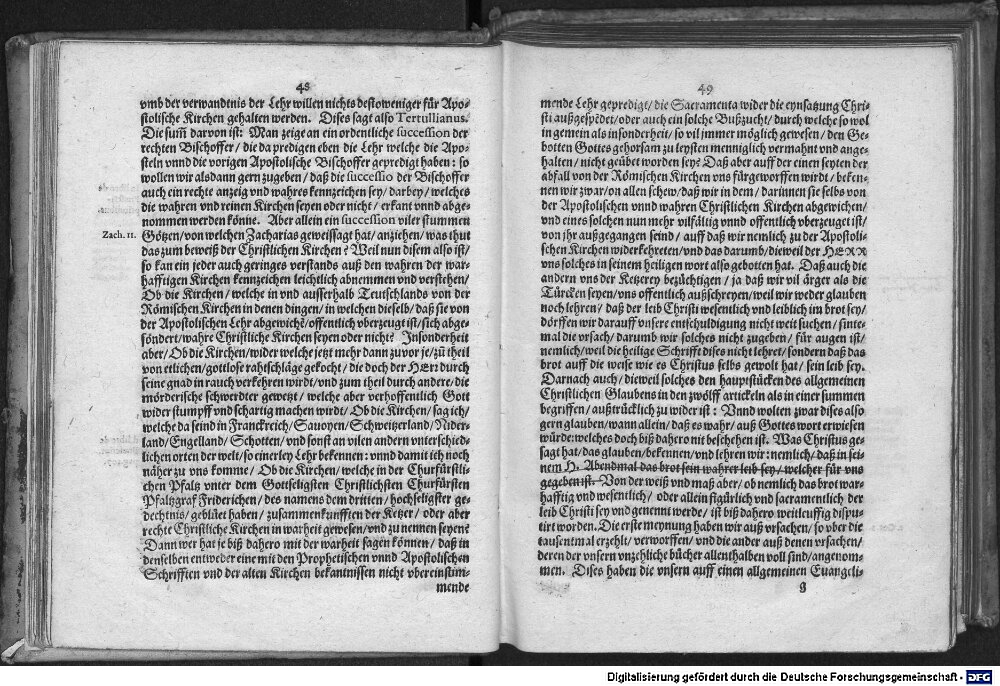 48
vmb der verwandtnis der Lehr willen nichts destoweniger für Apo-
stolische Kirchen gehalten werden. Dises sagt also Tertullianus.
Die sum̃ darvon ist: Man zeige an ein ordentliche succession der
rechten Bischoffer / die da predigen eben die Lehr welche die Apo-
steln vnnd die vorigen Apostolische Bischoffer gepredigt haben: so
wollen wir alsdann gern zugeben / daß die successio der Bischoffer
auch ein rechte anzeig vnd wahres kennzeichen sey / darbey / welches
die wahren vnd reinen Kirchen seyen oder nicht / erkant vnnd abge-
nommen werden könne. Aber allein ein succession viler stummen
Zach. 11. Götzen / von welchen Zacharias geweissagt hat / anziehen / was thut
das zum beweiß der Christlichen Kirchen? Weil nun disem also ist /
so kan ein jeder auch geringes verstands auß den wahren der war-
hafftigen Kirchen kennzeichen leichtlich abnemmen vnd verstehen /
Ob die Kirchen / welche in vnd ausserhalb Teutschlands von der
Römischen Kirchen in denen dingen / in welchen dieselb / daß sie von
der Apostolischen Lehr abgewichẽ / offentlich vberzeuget ist / sich abge-
söndert / wahre Christliche Kirchen seyen oder nicht? Insonderheit
aber / Ob die Kirchen / wider welche jetzt mehr dann zuvor je / zu theil
von etlichen / gottlose rahtschläge gekocht / die doch der HErr durch
seine gnad in rauch verkehren wirdt / vnd zum theil durch andere / die
mörderische schwerdter gewetzt / welche aber verhoffentlich Gott
wider stumpff vnd schartig machen wirdt / Ob die Kirchen / sag ich /
welche da seind in Franckreich / Savoyen / Schweitzerland / Nider-
land / Engelland / Schotten / vnd sonst an vilen andern vnterschied-
lichen orten der welt / so einerley Lehr bekennen: vnnd damit ich noch
näher zu vns komme / Ob die Kirchen / welche in der Churfürstli-
chen Pfaltz vnter dem Gottseligsten Christlichsten Churfürsten
Pfaltzgraf Friderichen / des namens dem dritten / hochseligster ge-
dechtnis / geblüet haben / zusammenkunfften der Ketzer / oder aber
rechte Christliche Kirchen in warheit gewesen / vnd zu nennen seyen?
Dann wer hat je biß dahero mit der warheit sagen können / daß in
denselben entweder eine mit den Prophetischen vnnd Apostolischen
Schrifften vnd der alten Kirchen bekantnissen nicht vbereinstim-
mende
49
mende Lehr gepredigt / die Sacramenta wider die eynsatzung Chri-
sti außgespẽdet / oder auch ein solche Bußzucht / durch welche so wol
in gemein als in sonderheit / so vil jmmer möglich gewesen / den Ge-
botten Gottes gehorsam zu leysten menniglich vermahnt vnd ange-
halten / nicht geübet worden sey? Daß aber auff der einen seyten der
abfall von der Römischen Kirchen vns fürgeworffen wirdt / beken-
nen wir zwar / on allen schew / daß wir in dem / darinnen sie selbs von
der Apostolischen vnnd wahren Christlichen Kirchen abgewichen /
vnd eines solchen nun mehr vilfältig vnnd offentlich vberzeuget ist /
von jhr außgegangen seind / auff daß wir nemlich zu der Apostoli-
schen Kirchen widerkehreten / vnd das darumb / dieweil der HERR
vns solches in seinem heiligen wort also gebotten hat. Daß auch die
andern vns der Ketzerey bezüchtigen / ja daß wir vil ärger als die
Türcken seyen / vns offentlich außschreyen / weil wir weder glauben
noch lehren / daß der leib Christi wesentlich vnd leiblich im brot sey /
dörffen wir darauff vnsere entschuldigung nicht weit suchen / sinte-
mal die vrsach / darumb wir solches nicht zugeben / für augen ist /
nemlich / weil die heilige Schrifft dises nicht lehret / sondern daß das
brot auff die weise wie es Christus selbs gewolt hat / sein leib sey.
Darnach auch / dieweil solches den hauptstücken des allgemeinen
Christlichen Glaubens in den zwölff artickeln als in einer summen
begriffen / außtrücklich zu wider ist: Vnnd wolten zwar dises also
gern glauben / wann allein / daß es wahr / auß Gottes wort erwiesen
würde: welches doch biß dahero nit beschehen ist. Was Christus ge-
sagt hat / das glauben / bekennen / vnd lehren wir: nemlich / daß in sei-
nem H. Abendmal das brot sein wahrer leib sey / welcher für vns
gegeben ist. Von der weiß vnd maß aber / ob nemlich das brot war-
hafftig vnd wesentlich / oder allein figürlich vnd sacramentlich der
leib Christi sey vnd genennt werde / ist biß dahero weitleuffig dispu-
tirt worden. Die erste meynung haben wir auß vrsachen / so vber die
tausentmal erzehlt / verworffen / vnd die ander auß denen vrsachen /
deren der vnsern vnzehliche bücher allenthalben voll sind / angenom-
men. Dises haben die vnsern auff einen allgemeinen Euangeli-
g
Digitalisierung gefördert durch die Deutsche Forschungsgemeinschaft - DFG